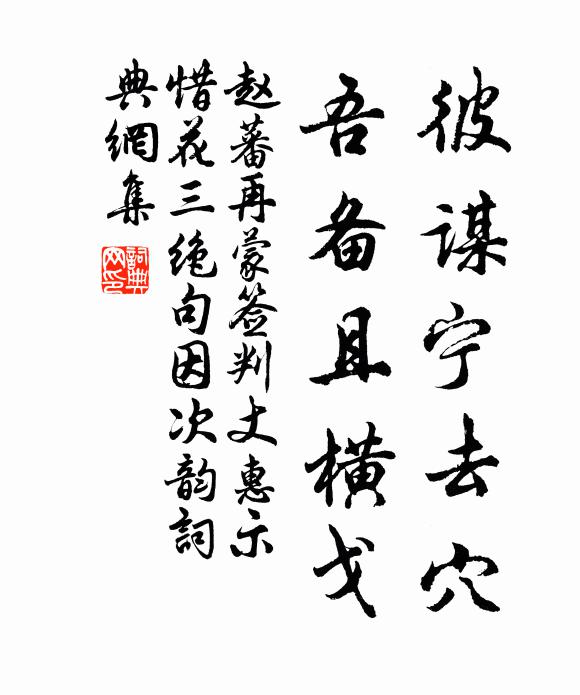 彼谋宁去穴
吾备且横戈
赵蕃再蒙签判丈惠示
惜花三绝句因次韵詞
典網集
詞典
网印